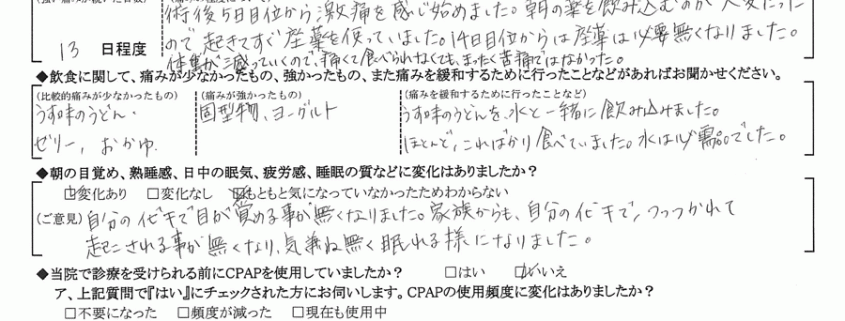 術後5日目位から激痛を感じ始めました。朝の薬を飲み込むのが大変だった
13 日程度
ので起きてすぐ座薬を使っていました。14日目位からは座薬は必要無くなりました。
体重が減っていくので、痛くて食べられなくても、まったく苦痛ではなかった。
◆飲食に関して、痛みが少なかったもの、強かったもの、また痛みを緩和するために行ったことなどがあればお聞かせください。
(比較的痛みが少なかったもの) (痛みが強かったもの) (痛みを緩和するために行ったことなど)
うす味のうどん・ 固型物、ヨーグルト うす味のうどんを、水と一緒に飲み込みました。
ゼリー、おかゆ ほとんど、こればかり食べていました。水は必需品でした。
◆朝の目覚め、熟睡感、日中の眠気、疲労感、睡眠の質などに変化はありましたか?
□変化あり □変化なし □もともと気になっていなかったためわからない
(ご意見) 自分のイビキで目が覚める事が無くなりました。家族からも、自分のイビキで、つっつかれて
起こされる事が無くなり、気兼ね無く眠れる様になりました。
◆当院で診療を受けられる前にCPAPを使用していましたか? □はい □いいえ
ア、上記質問で『はい』にチェックされた方にお伺いします。CPAPの使用頻度に変化はありましたか?
□不要になった □頻度が減った □現在も使用中